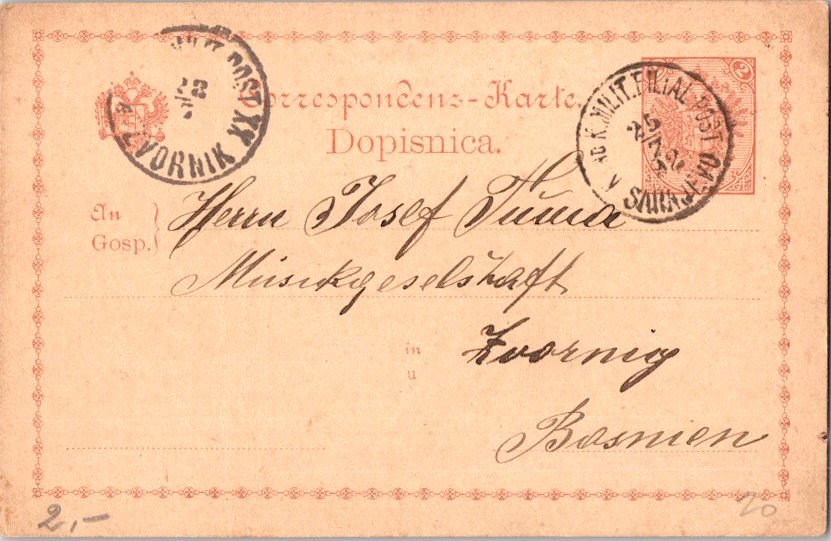 MILIT. POST XX
ZVORNIK
Correspondenz-Karte.
Dopisnica.
K. MILIT. FILIAL-POST
2
An
Gosp.
Herrn Josef Tuma
Musikgeselshaft
in
u
Zvornig
Bosnien
2,-
20